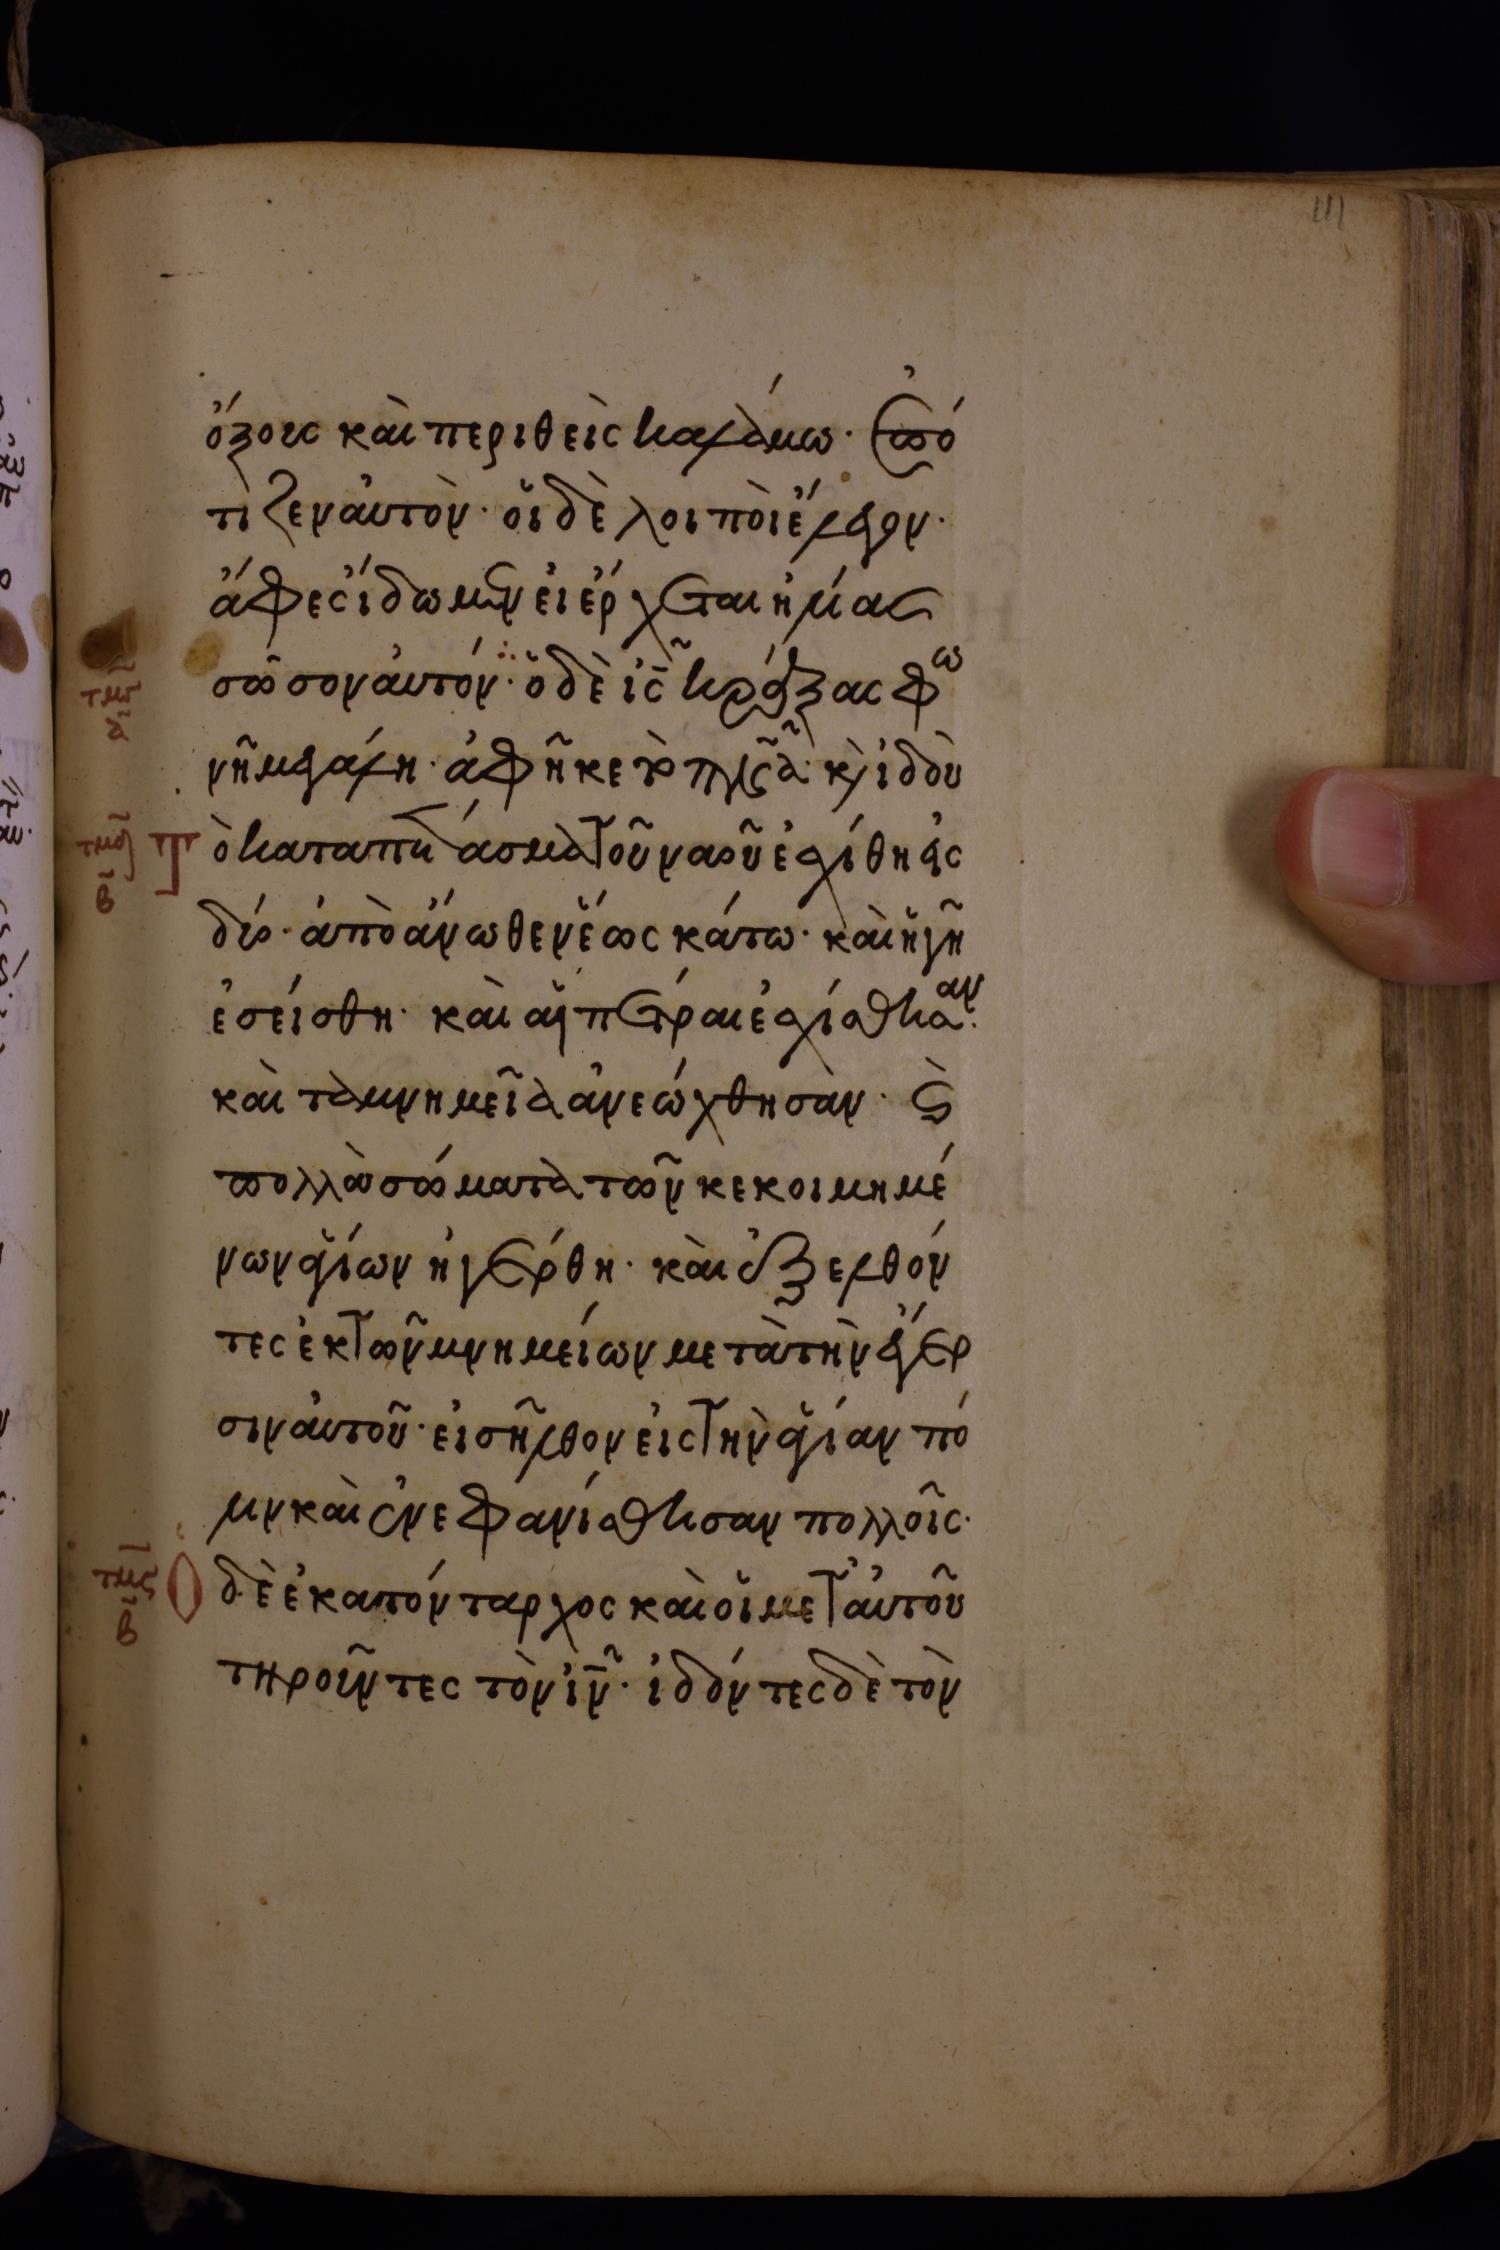 111
ὄξους καὶ περιθεὶς καλάμω· ἐπό
τιζεν αὐτὸν· οἱ δὲ λοιποὶ ἔλεγον·
ἄφες ἴδωμεν εἰ ἔρχεται ἡμίας
σῶσον αὐτόν· ὁ δὲ ις κράξας φω
νῆ μεγάλη· ἀφῆκε τὸ πνα· κὶ ἰδοὺ
τμδ β Τὸ καταπέτασμα τοῦ ναοῦ ἐσχίθη εἰς
δύο· ἀπὸ ἄνωθεν ἕως κάτω· καὶ ἡ γῆ
ἐσείσθη· καὶ αἱ πέτραι ἐσχίσθησαν·
καὶ τὰ μνημεῖα ἀνεώχθησαν· ϗ
πολλὰ σώματα τῶν κεκοιμημέ
νων ἁγίων ἠγέρθη· καὶ ἐξελθόν
τες ἐκ τῶν μνημείων μετὰ τὴν ἔγερ
σιν αὐτοῦ· εἰσῆλθον εἰς τὴν ἁγίαν πό
λιν καὶ ἐνεφανίσθησαν πολλοῖς·
τμς β Ὁ δὲ ἑκατόνταρχος καὶ οἱ μετ αὐτοῦ
τηροῦντες τὸν ιν· ἰδόντες δὲ τὸν